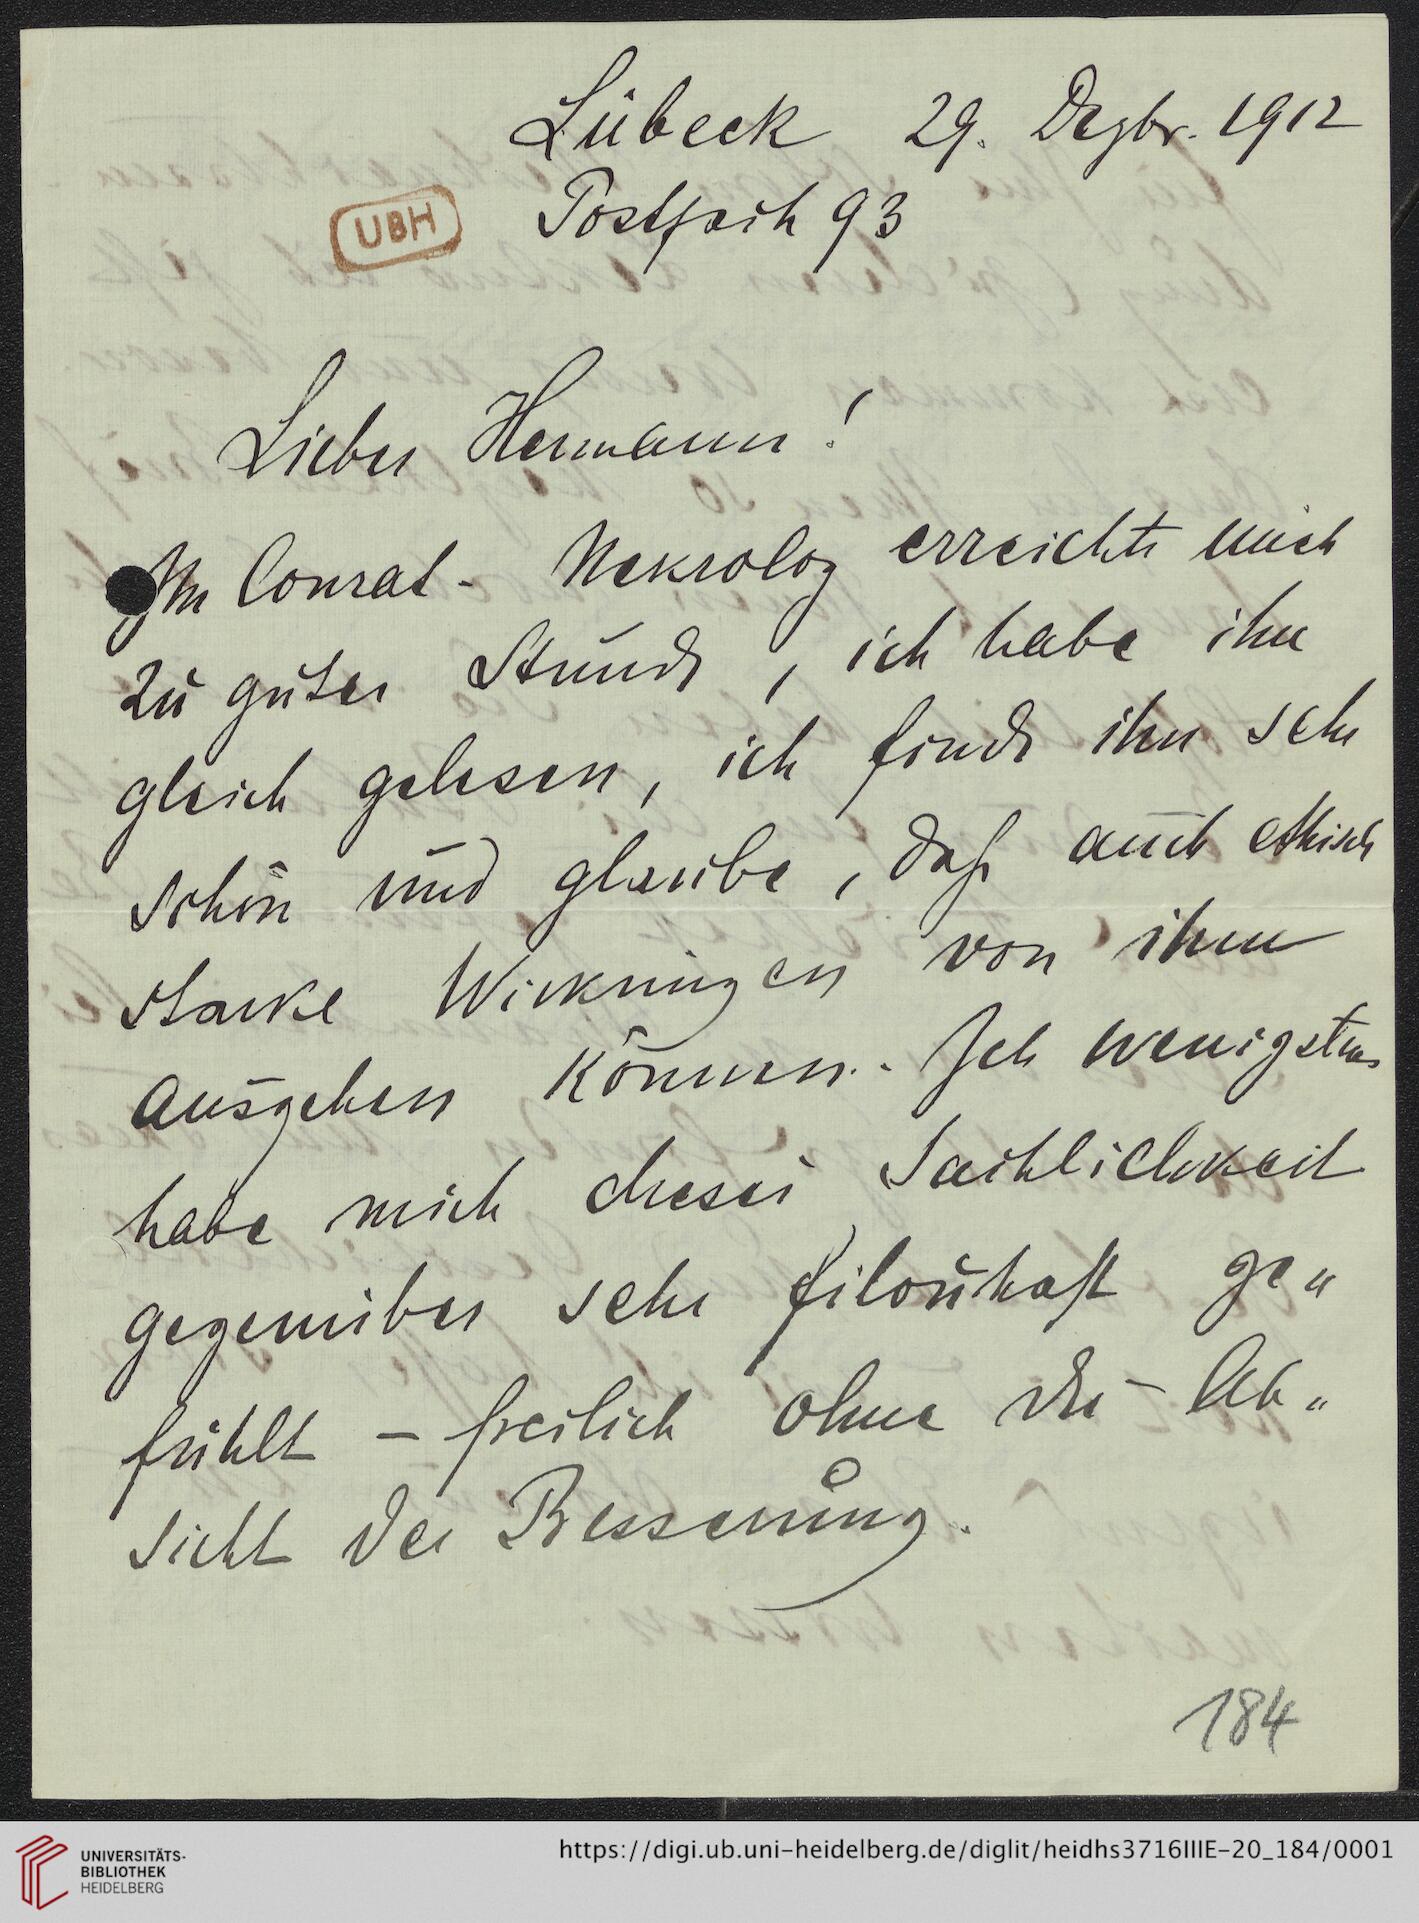 Lübeck 29. Dezbr. 1912
UBH
Postfach 93
Lieber Hermann!
Ihr Conrat- Nekrolog erreichte mich
zu guter Stunde, ich habe ihn
gleich gelesen, ich finde ihn sehr
schön und glaube, daß auch ethisch
starke Wirkungen von ihm
ausgehen können. Ich wenigstens
habe mich dieser Sachlichkeit
gegenüber sehr filouhaft ge„
fühlt – freilich ohne die – Ab„
sicht der Besserung.
184
UNIVERSITÄTS-
BIBLIOTHEK
HEIDELBERG
https://digi.ub.uni-heidelberg.de/diglit/heidhs3716IIIE-20_184/0001